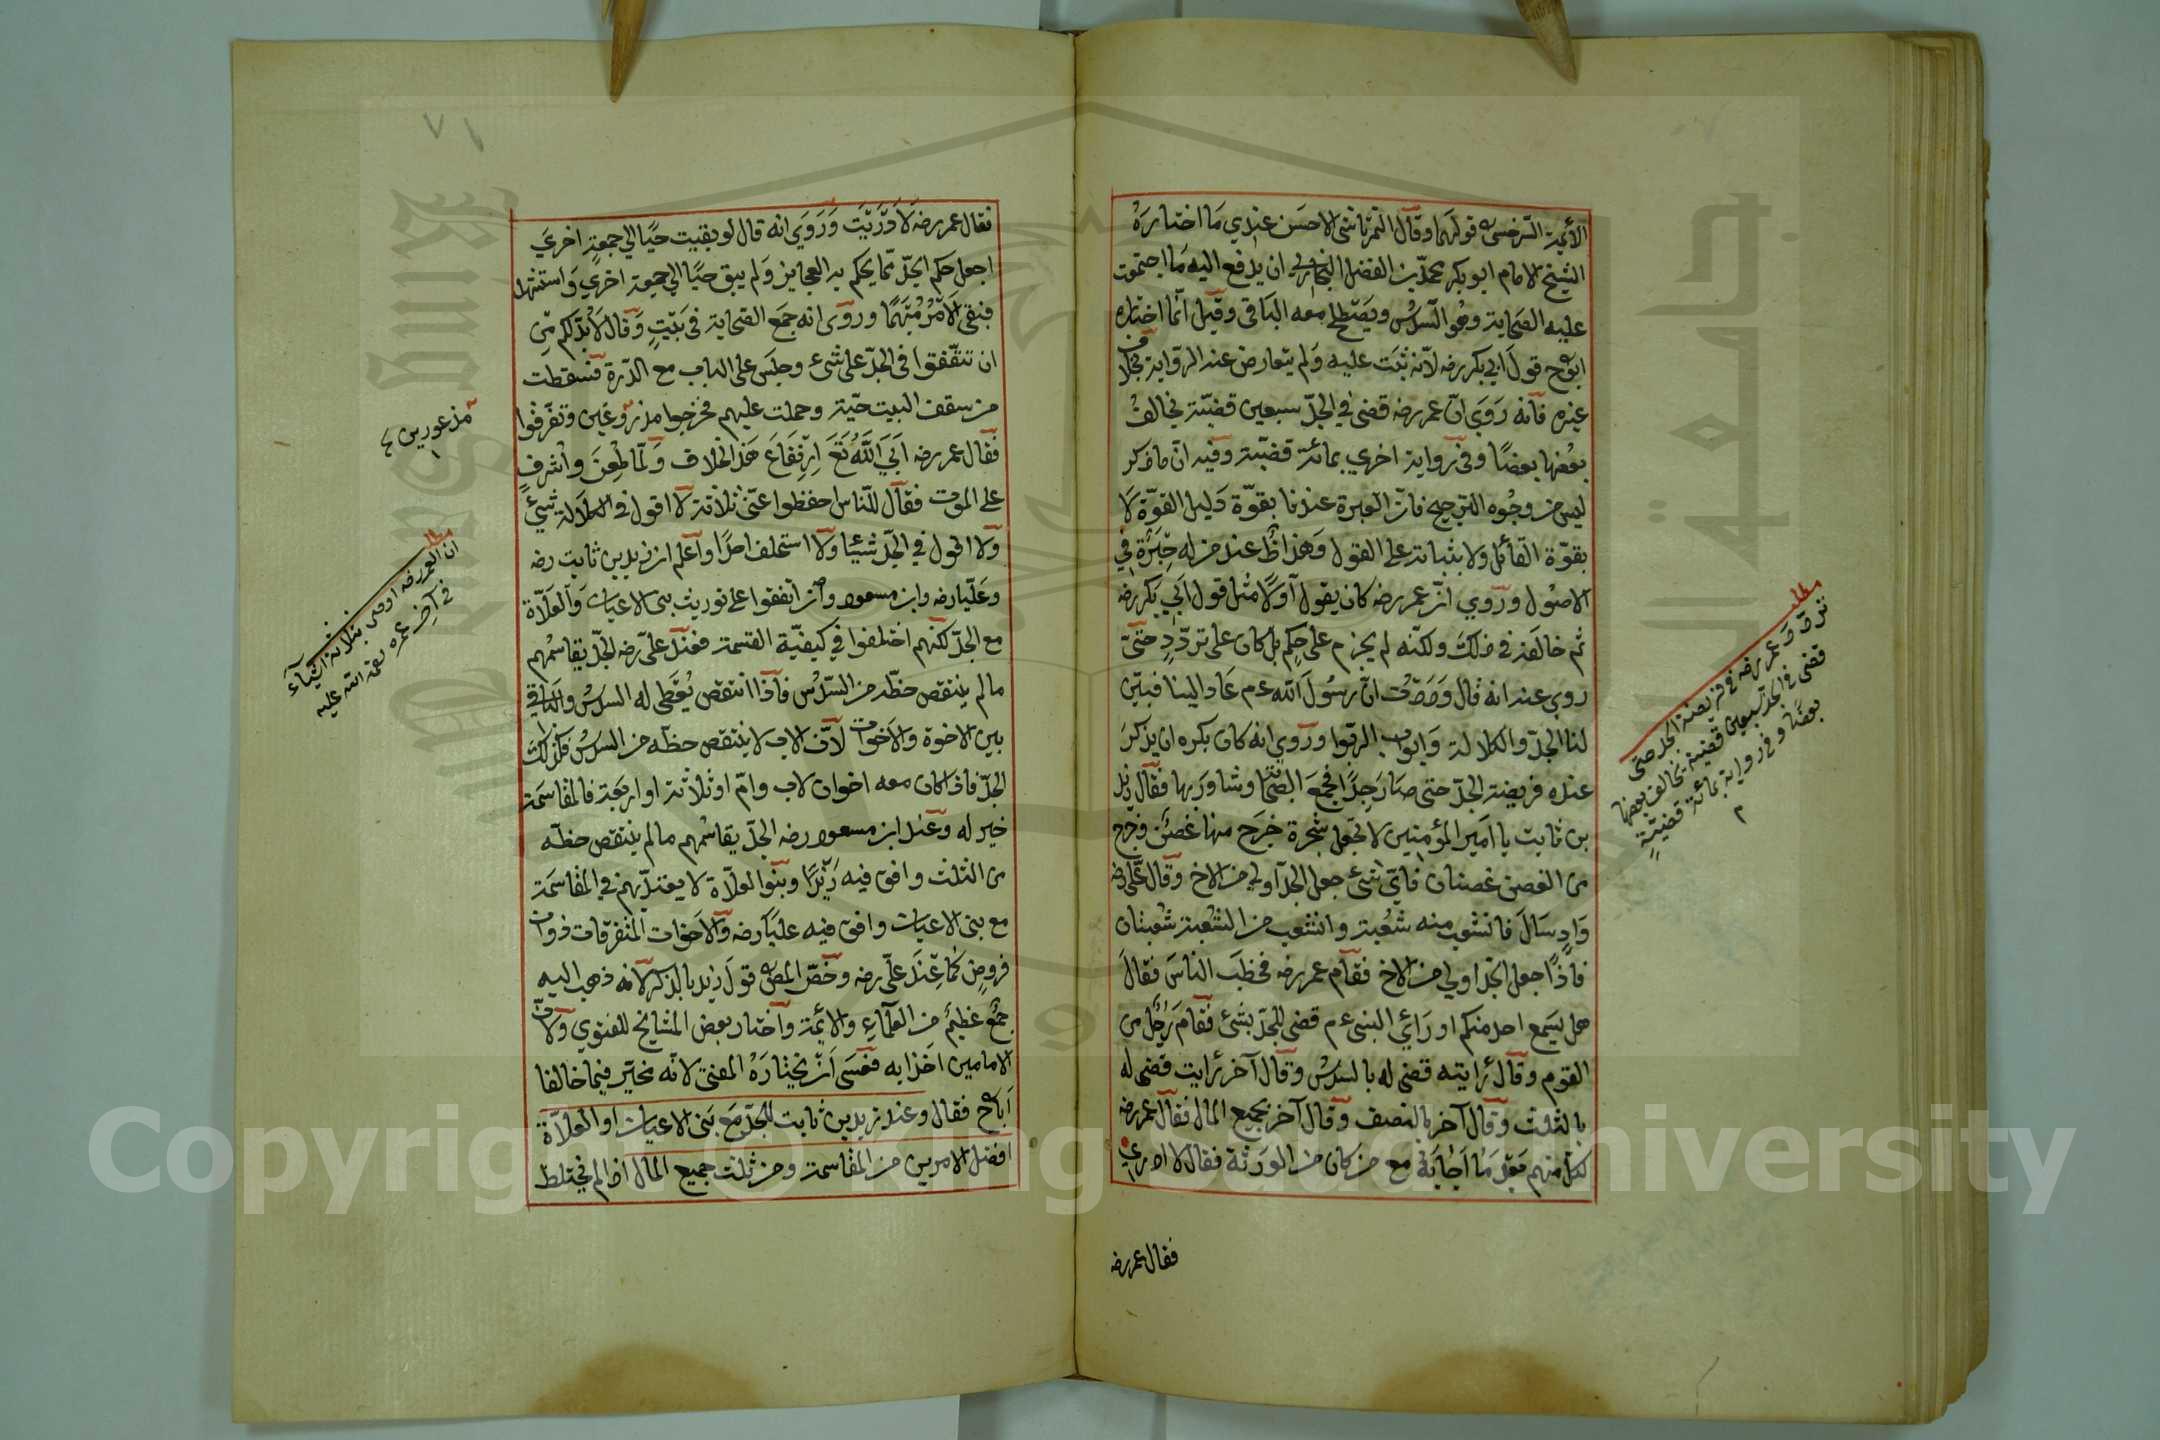 الأئمة السرخسي قولهما وقال التمرتاشي الاحسن عندي ما اختاره
الشيخ الامام ابو بكر محمد بن الفضل البخاري ان يدفع اليه ما اجتمعت
عليه الصحابة وهو السدس ويصطلح معه الباقي وقيل انما اختاره
ابوح قول ابي بكر رضه لانه ثبت عليه ولم يتعارض عنه الرواية بخلاف
غيره فانه روي ان عمر رضه قضى في الجد سبعين قضية تخالف
بعضها بعضا وفي رواية اخري بمائة قضية وفيه ان ما ذكر
ليس من وجوه الترجيح فان العبرة عندنا بقوة دليل القوة لا
بقوة القائل ولا بثباته على القول وهذا ظ عند من له خبرة في
الاصول وروي ان عمر رضه كان يقول اولا مثل قول ابي بكر رضه
ثم خالفه في ذلك ولكنه لم يجزم على حكم بل كان على تردد حتى
روي عنه انه قال وددت ان رسول الله عم عاد الينا فبين
لنا الجد والكلالة وابواب الربوا وروي انه كان يكره ان يذكر
عنده فريضة الجد حتى صار جدا فجمع الصحابة وشاورها فقال زيد
بن ثابت يا امير المؤمنين لا تجعل شجرة خرج منها غصن وخرج
من الغصن غصنان فاي شئ جعل الجد اولي من الاخ وقال علي رضه
واد سال فانشعب منه شعبة وانشعب من الشعبة شعبتان
فاذا جعل الجد اولي من الاخ فقام عمر رضه فخطب الناس فقال
هل يسمع احد منكم او رائي النبي عم قضى للجد بشئ فقام رجل من
القوم وقال رايته قضى له بالسدس وقال آخر رايت قضى له
بالثلث وقال آخر بالنصف وقال آخر بجميع المال فقال عمر رضه
لكل منهم بعد ما اجابه مع من كان من الورثة فقال لا ادري
فقال عمر رضه
مطلب
تردد عمر رضه في فريضة الجد حتى
قضى في الجد سبعين قضية تخالف بعضها
بعضا وفي رواية بمائة قضية
٧١
فقال عمر رضه لا دريت وروي انه قال لو بقيت حيا الي جمعة اخري
اجعل حكم الجد مما يحكم به العجايز ولم يبق حيا الي جمعة اخري واستشهد
فبقي الامر مبهما وروي انه جمع الصحابة في بيت وقال لا بد لكم من
ان تتفقوا في الجد على شئ وجلس على الباب مع الدرة فسقطت
من سقف البيت حية وحملت عليهم فخرجوا مذروعين وتفرقوا
فقال عمر رضه ابي الله تع ارتفاع هذا الخلاف ولما طعن واشرف
على الموت فقال للناس احفظوا عني ثلاثة لا اقول في الكلالة شئ
ولا اقول في الجد شيئا ولا استخلف احدا واعلم ان زيد بن ثابت رضه
وعليا رضه وابن مسعود رضه اتفقوا على توريث بني الاعيان والعلاة
مع الجد لكنهم اختلفوا في كيفية القسمة فعند علي رضه الجد يقاسمهم
ما لم ينتقص حظه من السدس فاذا انتقص يعطى له السدس والباقي
بين الاخوة والاخوات لان الاب لا ينتقص حظه من السدس فكذلك
الجد فاذا كان معه اخوان لاب وام او ثلاثة او اربعة فالمقاسمة
خير له وعند ابن مسعود رضه الجد يقاسمهم ما لم ينتقص حظه
من الثلث وافق فيه زيدا وبنوا العلاة لا يعتد بهم في المقاسمة
مع بني الاعيان وافق فيه عليا رضه والاخوات المتفرقات ذوات
فروض كما عند علي رضه وخص المص قول زيد بالذكر لانه ذهب اليه
جمع عظيم من العلماء والائمة واختار بعض المشايخ للفتوي ولان
الامامين اخذا به فعسى ان يختاره المفتي لانه مخير فيما خالفا
اباح فقال وعند زيد بن ثابت للجد مع بني الاعيان او العلاة
افضل الامرين من المقاسمة ومن ثلث جميع المال اذا لم يختلط
مذعورين
مطلب
ان العمر رضه اوصى بثلاثة اشياء
في آخر عمره رحمة الله عليه
جامعة الملك سعود
King Saud University
1957
Copyright © King Saud University